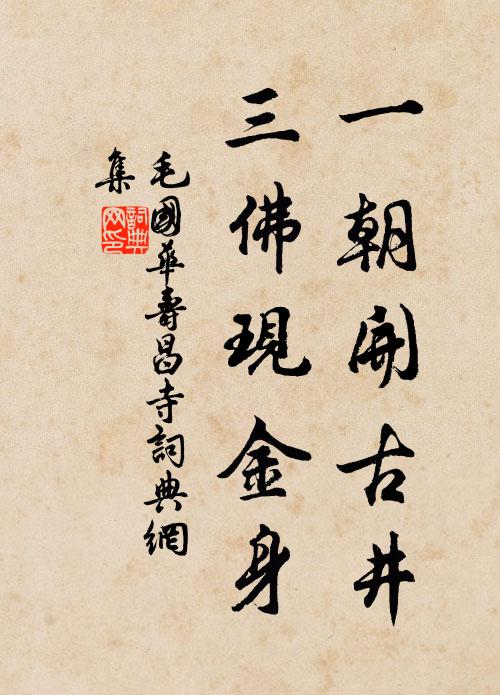 一朝開古井
三佛現金身
毛國華壽昌寺詞典網
集
詞典網印